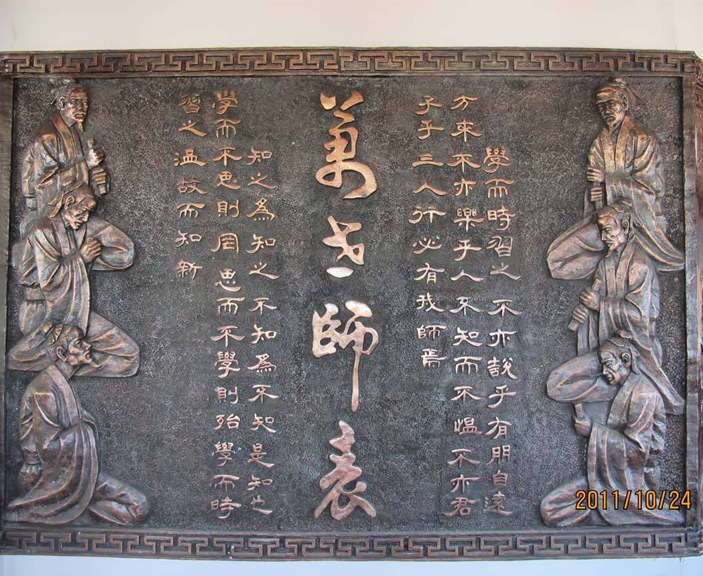 學而時習之不亦說乎有朋自遠
方來不亦樂乎人不知而不慍不亦君
子乎三人行必有我師焉
萬世師表
知之為知之不知為不知是知也
學而不思則罔思而不學則殆學而時
習之温故而知新
2011/10/24